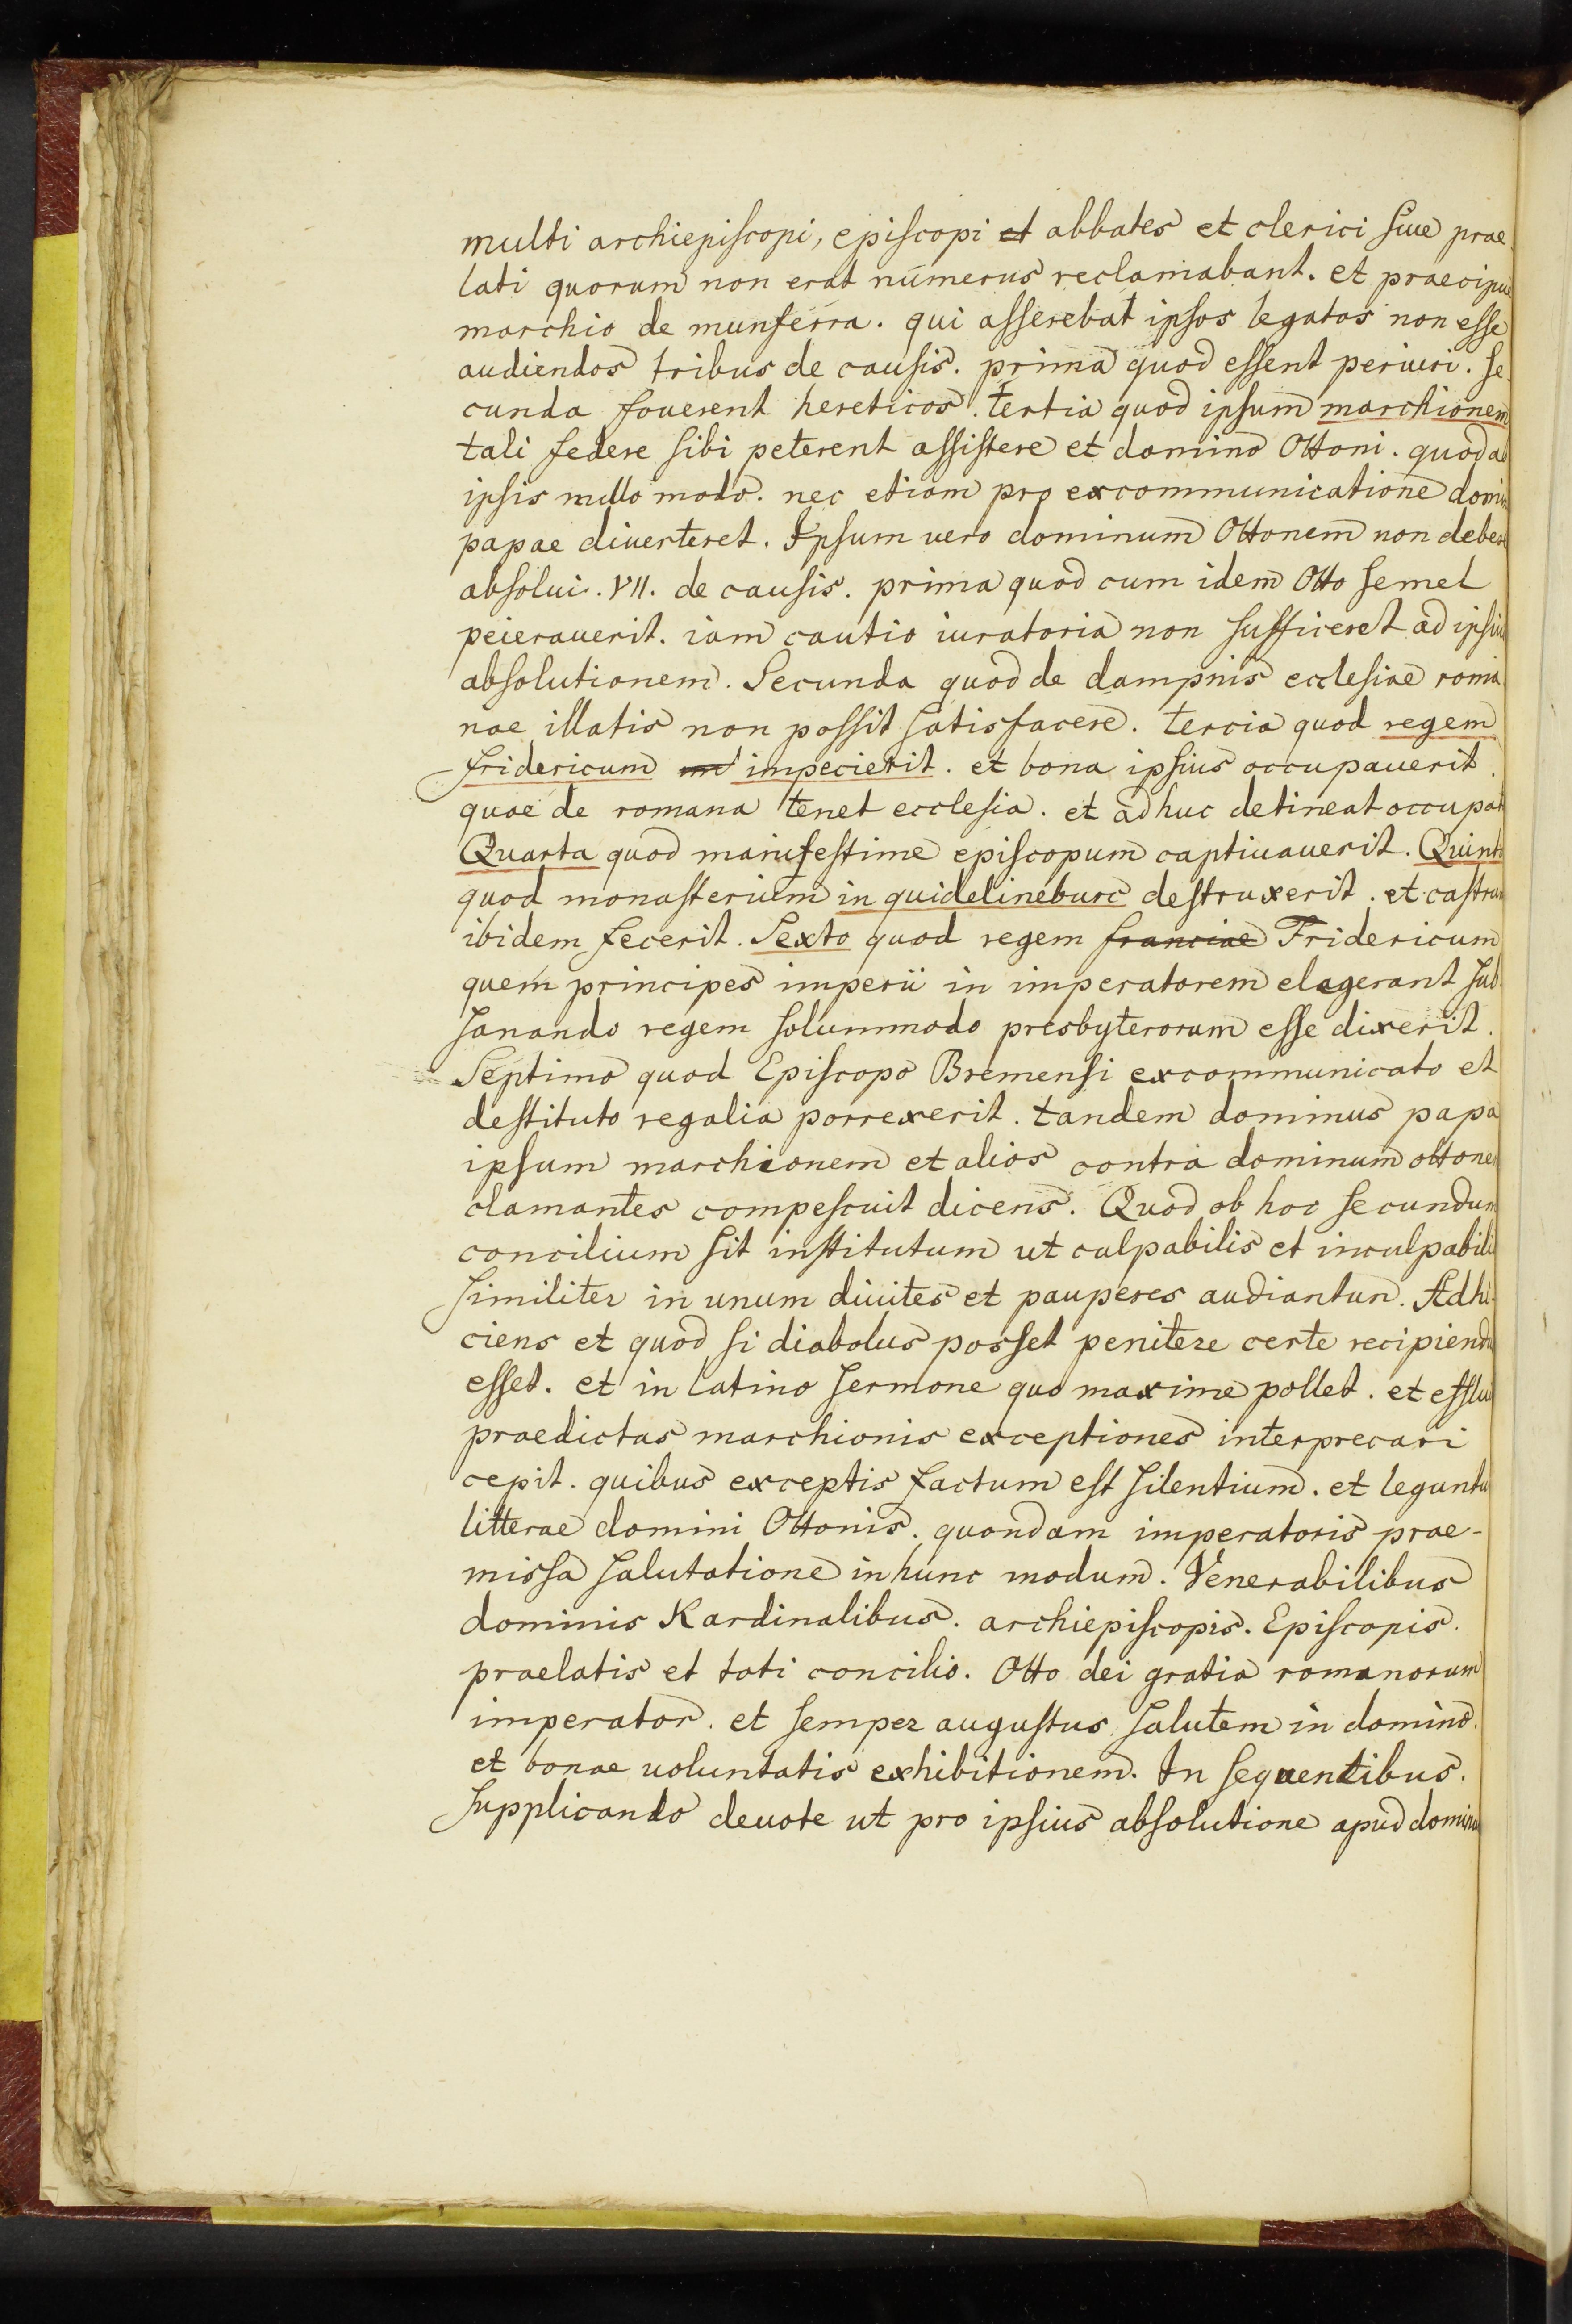 multi archiepiscopi, episcopi et abbates et clerici siue prae-
lati quorum non erat numerus reclamabant. et praecipue
marchio de munferra. qui asserebat ipsos legatos non esse
audiendos tribus de causis. prima quod essent periuri. se-
cunda fouerent hereticos. tertia quod ipsum marchionem
tali federe sibi peterent assistere et domino Ottoni. quod ab
ipsis nullo modo. nec etiam pro excommunicatione domin
papae diuerteret. Ipsum vero dominum Ottonem non debere
absolui. VII. de causis. prima quod cum idem Otto semel
peierauerit. iam cautio iuratoria non sufficeret ad ipsius
absolutionem. Secunda quod de dampnis ecclesiae roma
nae illatis non possit satisfacere. tercia quod regem
fridericum im impecierit. et bona ipsius occupauerit.
quae de romana tenet ecclesia. et adhuc detineat occupat
Quarta quod manifestime episcopum captiuauerit. Quinto
quod monasterium in quidelineburc destruxerit. et castrum
ibidem fecerit. Sexto quod regem franciae Fridericum
quem principes imperii in imperatorem elegerant sub
sanando regem solummodo presbyterorum esse dixerit.
Septimo quod Episcopo Bremensi excommunicato et
destituto regalia porrexerit. tandem dominus papa
ipsum marchionem et alios contra dominum ottonem
clamantes compescuit dicens. Quod ob hoc secundum
concilium sit institutum ut culpabilis et inculpabilis
similiter in unum diuites et pauperes audiantun. Adhi-
ciens et quod si diabolus posset penitere certe recipiendu
esset. et in latino sermone quo maxime pollet. et efflui
praedictas marchionis exceptiones interprecari
cepit. quibus exceptis factum est silentium. et leguntu
litterae domini Ottonis. quondam imperatoris prae-
missa salutatione in hunc modum. Venerabilibus
dominis Kardinalibus. archiepiscopis. Episcopis.
praelatis et toti concilio. Otto dei gratia romanorum
imperator. et semper augustus salutem in domino.
et bonae uoluntatis exhibitionem. In sequentibus.
supplicando deuote ut pro ipsius absolutione apud dominu